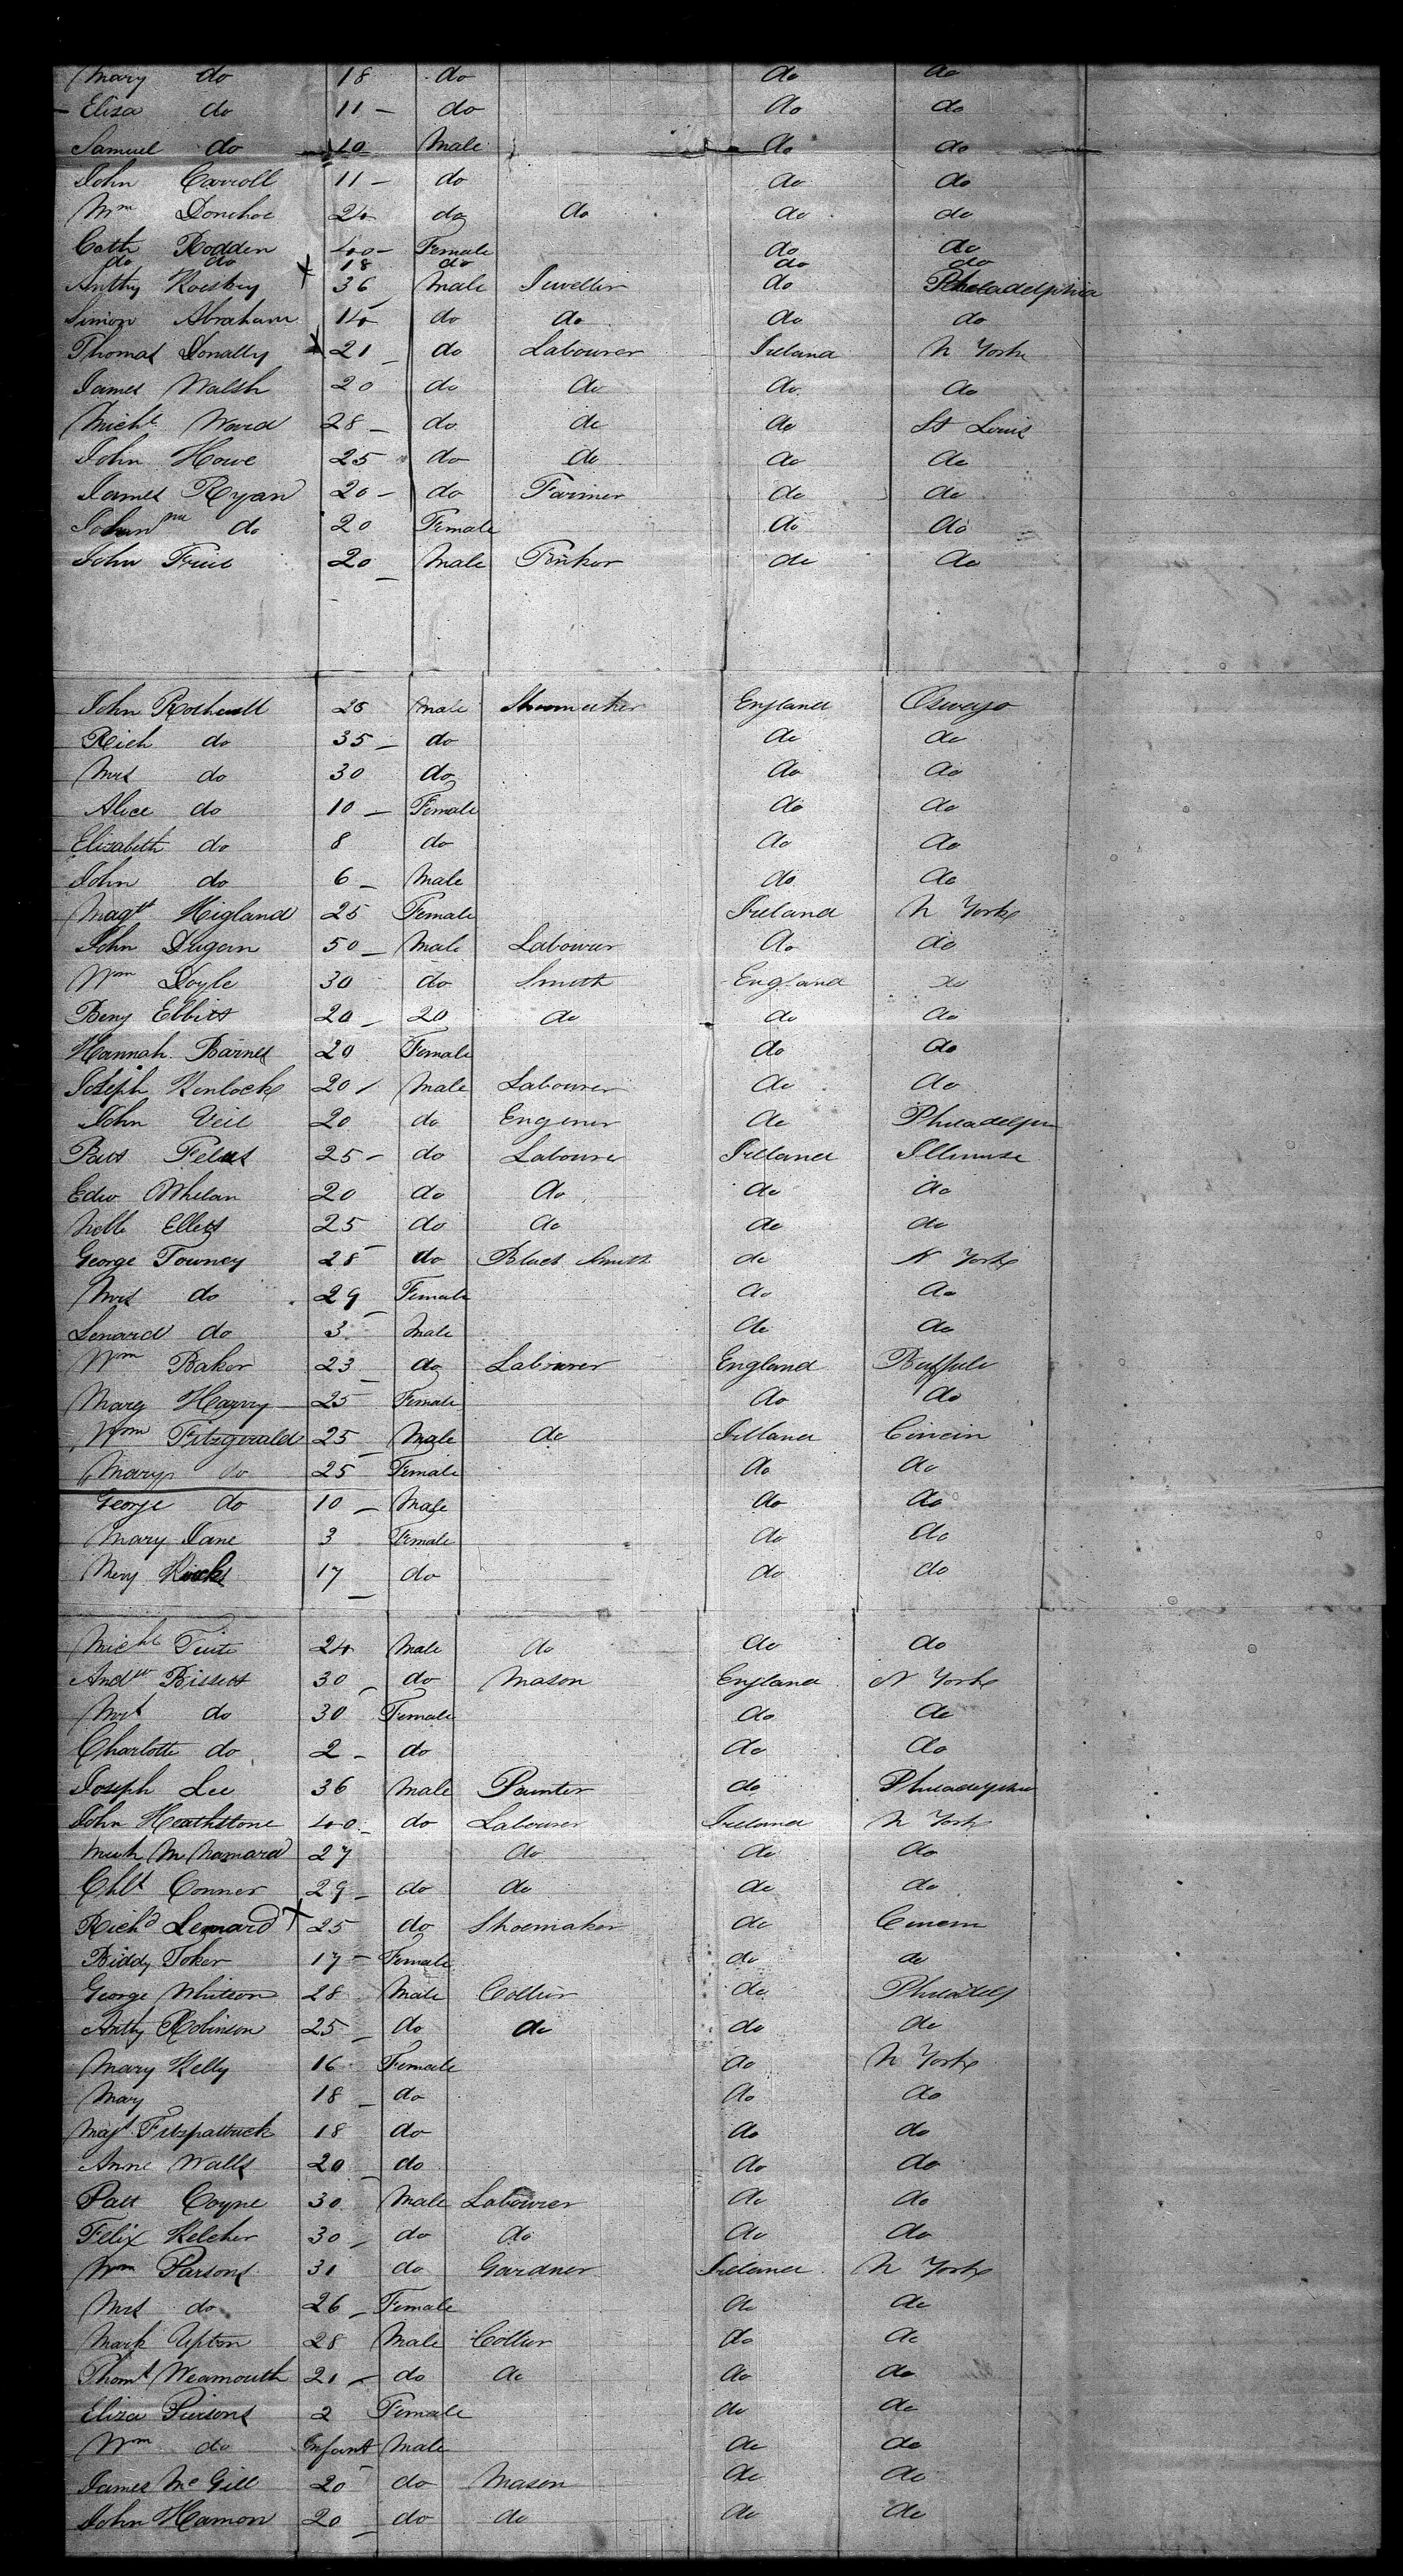 Mary do 18 do do do
Eliza do 11 do do do
Samuel do 10 Male do do
John Carroll 11 do do do
Wm Donohoe 24 do do do do
Cath Rodden 40 Female do do
do do 18 do do do
Anthy 36 Male Jweller do Philadelphia
Simon Abraham 14 do do do do
Thomas Donally 21 do Labourer Ireland N York
James Walsh 20 do do do do
Michl Ward 28 do do do St Louis
John Howe 25 do do do do
James Ryan 20 do Farmer do do
do 20 Female do do
John 20 Male do do
John Rothwell 25 Male Shoemaker England Oswego
Rich do 35 do do do
Mrs do 30 do do do
Alice do 10 Female do do
Elizabeth do 8 do do do
John do 6 Male do do
Magt Higland 25 Female Ireland N York
John Dugan 50 Male Labourer do do
Wm Doyle 30 do Smith England do
Benj Ebbits 20 20 do do do
Hannah Barnes 20 Female do do
Joseph Kenlock 20 Male Labourer do do
John Veil 20 do Enginer do
25 do Labourer Ireland
Edw Whelan 20 do do do do
Ellets 25 do do do do
George Towney 28 do Black Smith do N York
Mrs do 29 Female do do
Lenard do 3 Male do do
Wm Baker 23 do Labourer England Buffalo
Mary Harvy 25 Female do do
Wm Fitzgerald 25 Male do Ireland Cincin
Mary do 25 Female do do
George do 10 Male do do
Mary Jane 3 Female do do
17 do do do
Michl 24 Male do do do
Andw Bissett 30 do Mason England N York
Mrs do 30 Female do do
Charlotte do 2 do do do
Joseph Lee 36 Male Painter do Philadelphia
John Heathstone 40 do Labourer Ireland N York
Mich McNamara 27 do do do
Conner 29 do do do do
Richd Lennard 25 do Shoemaker do
Biddy Toker 17 Female do do
George Whitson 28 Male Collier do Philadelp
Anthy Robinson 25 do do do do
Mary Kelly 16 Female do N York
May 18 do do do
Magt Fitzpattrick 18 do do do
Anne Walls 20 do do do
Patt Coyne 30 Male Labourer do do
Felix Kelcher 30 do do do do
Wm Parsons 31 do Gardner Ireland N York
Mrs do 26 Female do do
Mark Upton 28 Male Collier do do
Thoms Weamouth 21 do do do do
Eliza Piersons 2 Female do do
Wm do Infant Male do do
James McGill 20 do Mason do do
John Hamon 20 do do do do